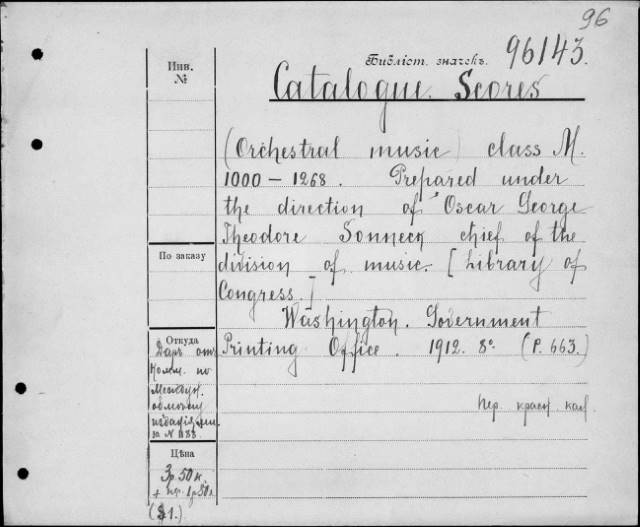 96
Библіот. значекъ. 96143.
Инв.
№
Catalogue. Scores
(Orchestral music) class M.
1000 – 1268. Prepared under
the direction of Oscar George
Theodore Sonneck chief of the
division of music. [Library of
Congress.]
Washington. Government
Printing Office. 1912. 8°. (P. 663.)
По заказу
Откуда
Даръ отъ
Комм. по
Междун.
обмѣну
изданіями.
за N 1183.
Пер. красн. кал.
Цѣна
3р 50к.
+ пер. 1р 50к
($1.)